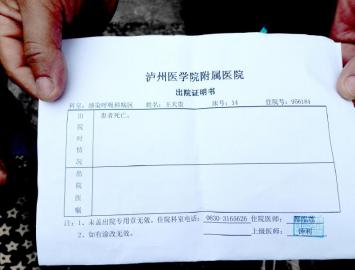 泸州医学院附属医院
出院证明书
科室：感染呼吸科病区 姓名：王天贵 床号：34 住院号：956184
出院时情况
患者死亡。
出院医嘱
注：1、未盖出院专用章无效。住院科室电话：0830-3165626 住院医师：
2、如有涂改无效。 上级医师：